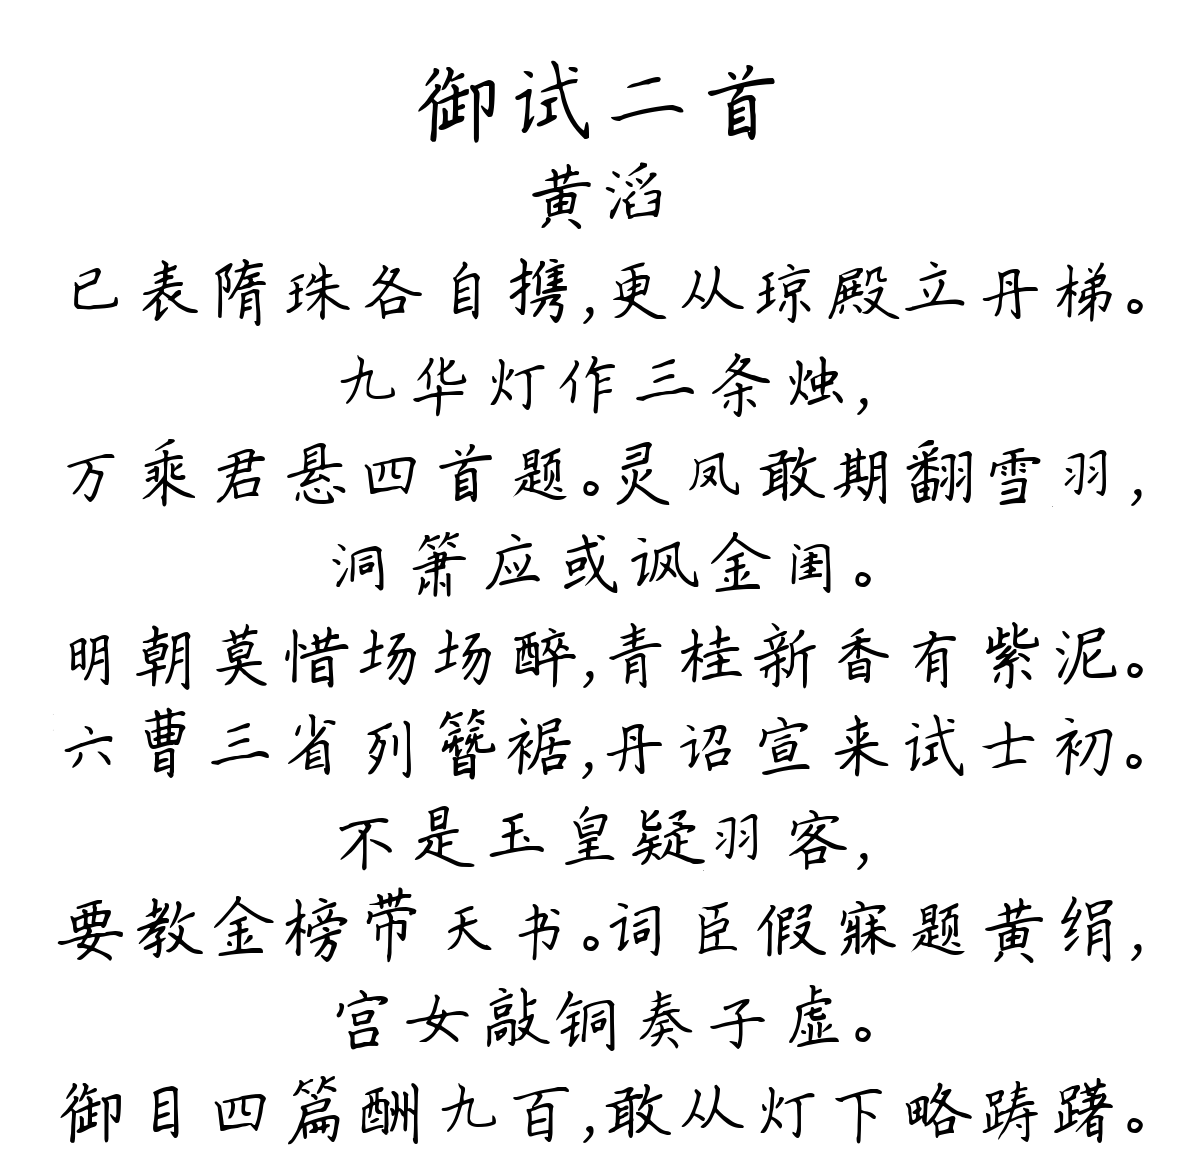 御试二首
黄滔
已表隋珠各自携,更从琼殿立丹梯。
九华灯作三条烛,
万乘君悬四首题。灵凤敢期翻雪羽,
洞箫应或讽金闺。
明朝莫惜场场醉,青桂新香有紫泥。
六曹三省列簪裾,丹诏宣来试士初。
不是玉皇疑羽客,
要教金榜带天书。词臣假寐题黄绢,
宫女敲铜奏子虚。
御目四篇酬九百,敢从灯下略踌躇。